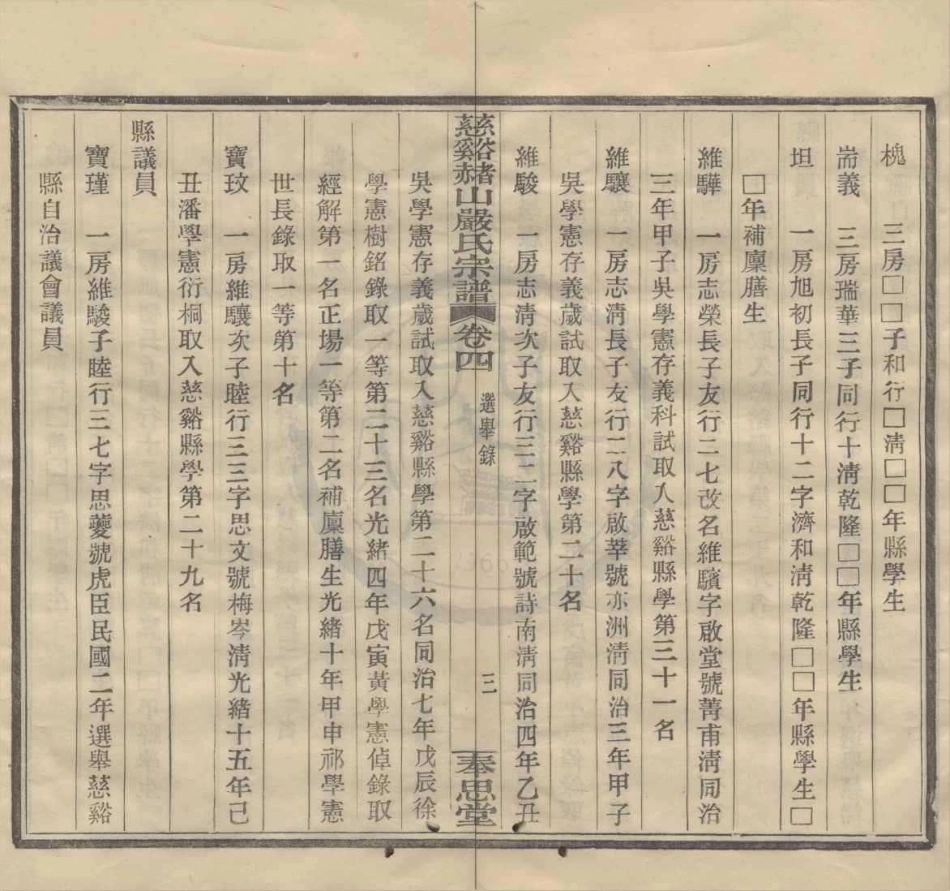 槐　三房□□子和行□清□□年縣學生
耑義　三房瑞華三子同行十清乾隆□□年縣學生
坦　一房旭初長子同行十二字濟和清乾隆□□年縣學生□
□年補廩膳生
維驊　一房志榮長子友行二七改名維驞字啟堂號菁甫清同治
三年甲子吳學憲存義科試取入慈谿縣學第三十一名
維驤　一房志清長子友行二八字啟莘號亦洲清同治三年甲子
吳學憲存義歲試取入慈谿縣學第二十名
維駿　一房志清次子友行三二字啟範號詩南清同治四年乙丑
慈谿赭山嚴氏宗譜　卷四　選舉錄　三　奉思堂
吳學憲存義歲試取入慈谿縣學第二十六名同治七年戊辰徐
學憲樹銘錄取一等第二十三名光緒四年戊寅黃學憲倬錄取
經解第一名正場一等第二名補廩膳生光緒十年甲申祁學憲
世長錄取一等第十名
寶玟　一房維驤次子睦行三三字思文號梅岑清光緒十五年己
丑潘學憲衍桐取入慈谿縣學第二十九名
縣議員
寶瑾　一房維駿子睦行三七字思夔號虎臣民國二年選舉慈谿
縣自治議會議員